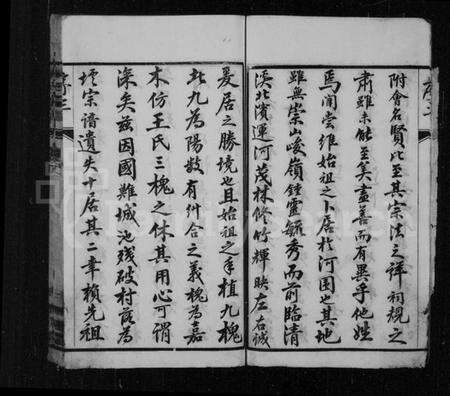 附會名賢此至其宗法之詳祠規之
肅雖未能至美盡善而有異乎他姓
焉聞嘗維始祖之卜居於河園也其地
雖無崇山峻嶺鍾靈毓秀而前臨清
溪北濱運河茂林修竹輝映左右誠
爰居之勝境也且始祖之手植九槐
此九為陽數有糾合之義槐為嘉
木仿王氏三槐之休其用心可謂
深矣茲因國難城池殘破村落為
墟宗譜遺失十居其二幸賴先祖